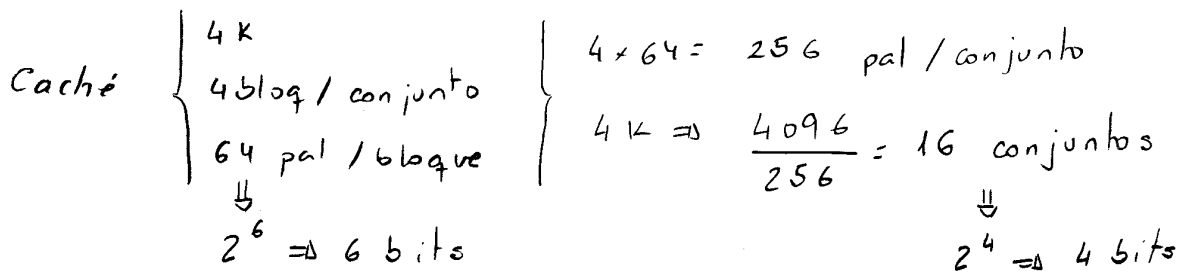 Caché
4K
4 bloq / conjunto
64 pal / bloque
⇓
2^6 ⇒ 6 bits
4 × 64 = 256 pal / conjunto
4K ⇒ 4096 / 256 = 16 conjuntos
⇓
2^4 ⇒ 4 bits